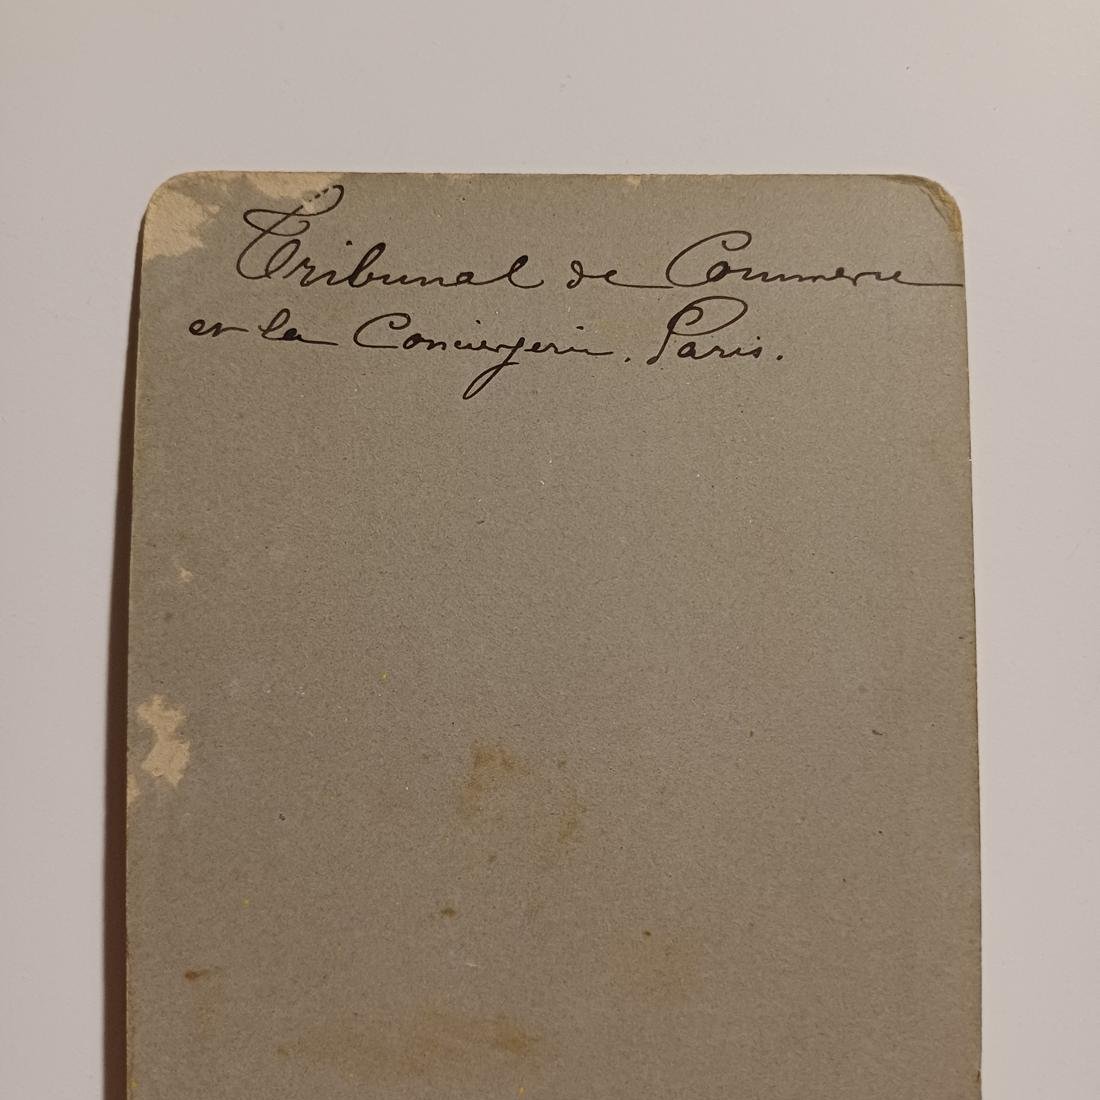 Tribunal de Commerce
et la Conciergerie. Paris.